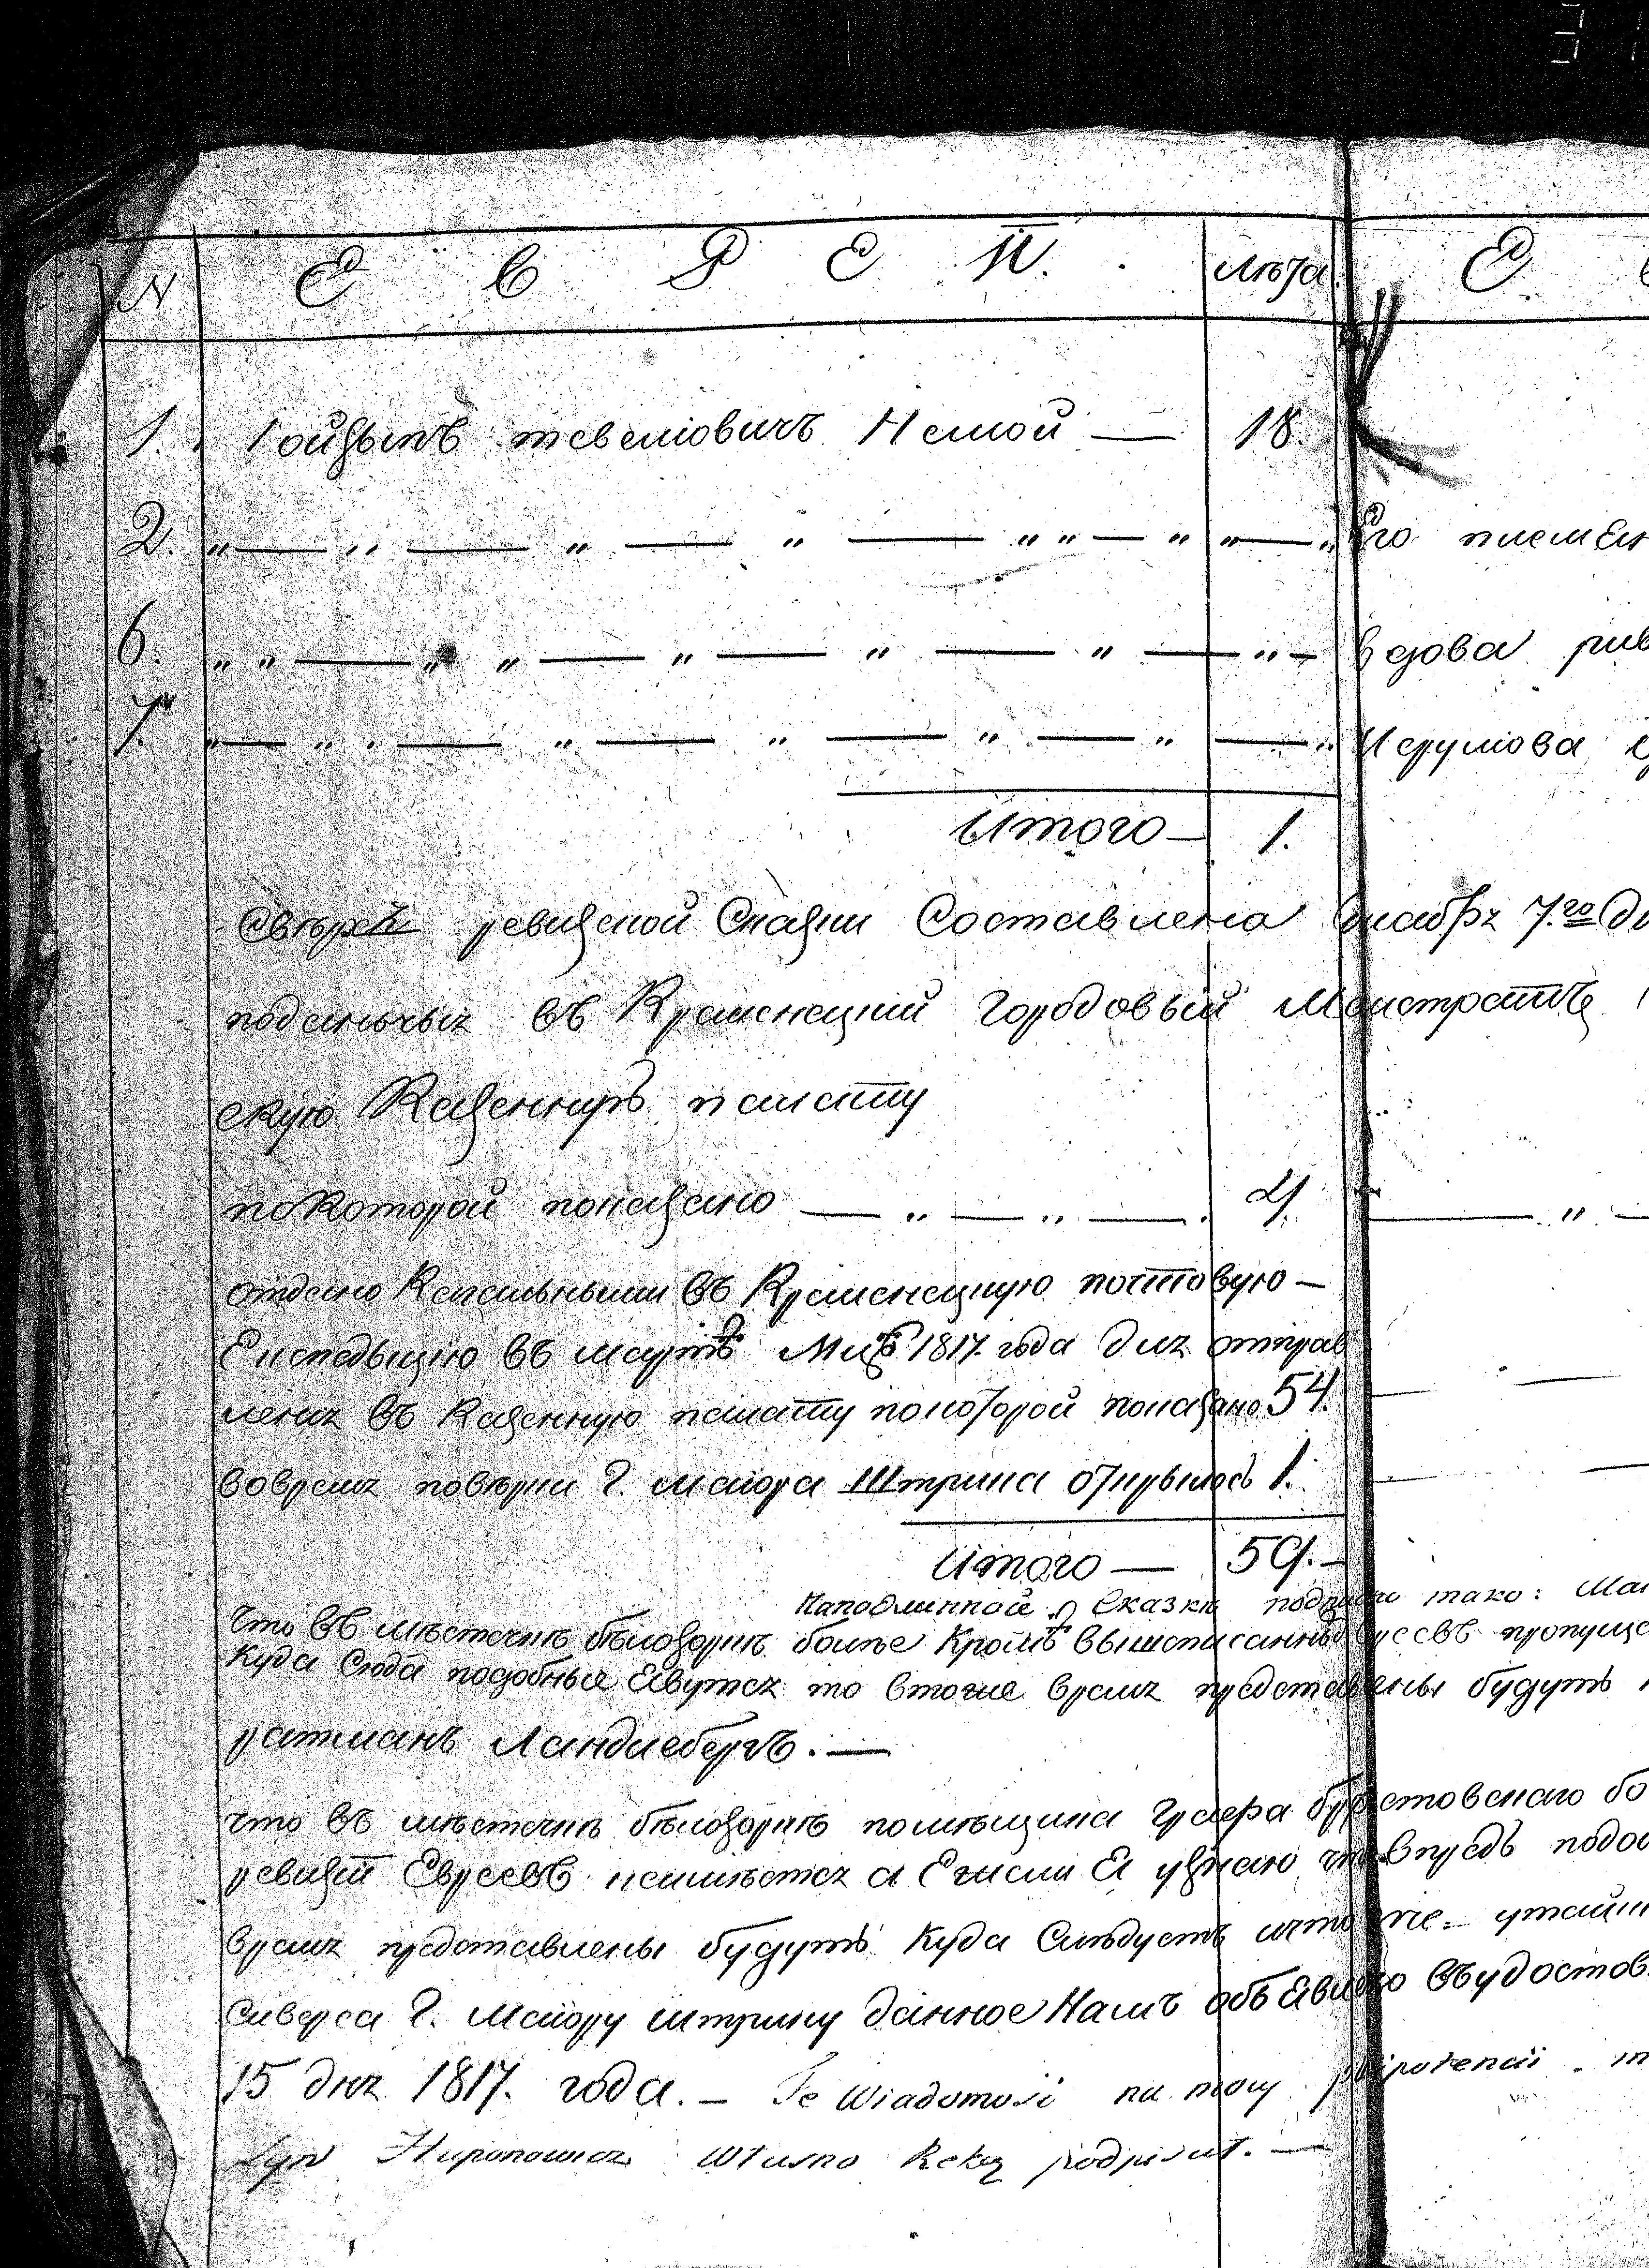 N Е В Р Е И. Лѣта Е
1. Іойзыпъ тевеліовичъ Немой — 18.
2. „ — „ — „ — „ — „ „ — „ „ — „ Его племен
6. „ „ — „ „ — „ — „ — „ — „ — Вдова рив
7. „ — „ — „ — „ — „ — „ — „ Исрулiова
Итого — 1.
Сверхъ ревизской Сказки Составлена Декабря 7.го Дн
поданыхъ въ Кременецкий Городовый Магистратъ
скую Казенную палату
по Которой показано — „ — „ — 4
отдано Кагальными въ Кременецкую почтовую —
Експедыцію въ мартѣ Мцѣ 1817 года для отправ
леня въ Казенную палату покоторой показано 54.
вовремя повѣрки Г. маиора Штрика открылось 1.
Итого — 59. —
Наподлинной Сказки подписано тако:
Что въ мѣстечкѣ бѣлозоркѣ более Кромѣ вышеписанныхъ Евреевъ пропуще
Куда Сюда подобные Евутся то втоже время представлены будутъ
ратманъ Ландисбергъ. —
что въ мѣстечкѣ бѣлозоркѣ помѣщика
ревизіи Евреевъ неимѣется а Ежели Я узнаю чтовпредъ подо
время представлены будутъ Куда Слѣдуетъ ичто утайки
Сиверса Г. Маиору штрику данное Намъ объявлено въудостов
15 дня 1817. года. — Te Wiadomość na mocy plenipotencii
Syn Własno Ręką podpisał. —